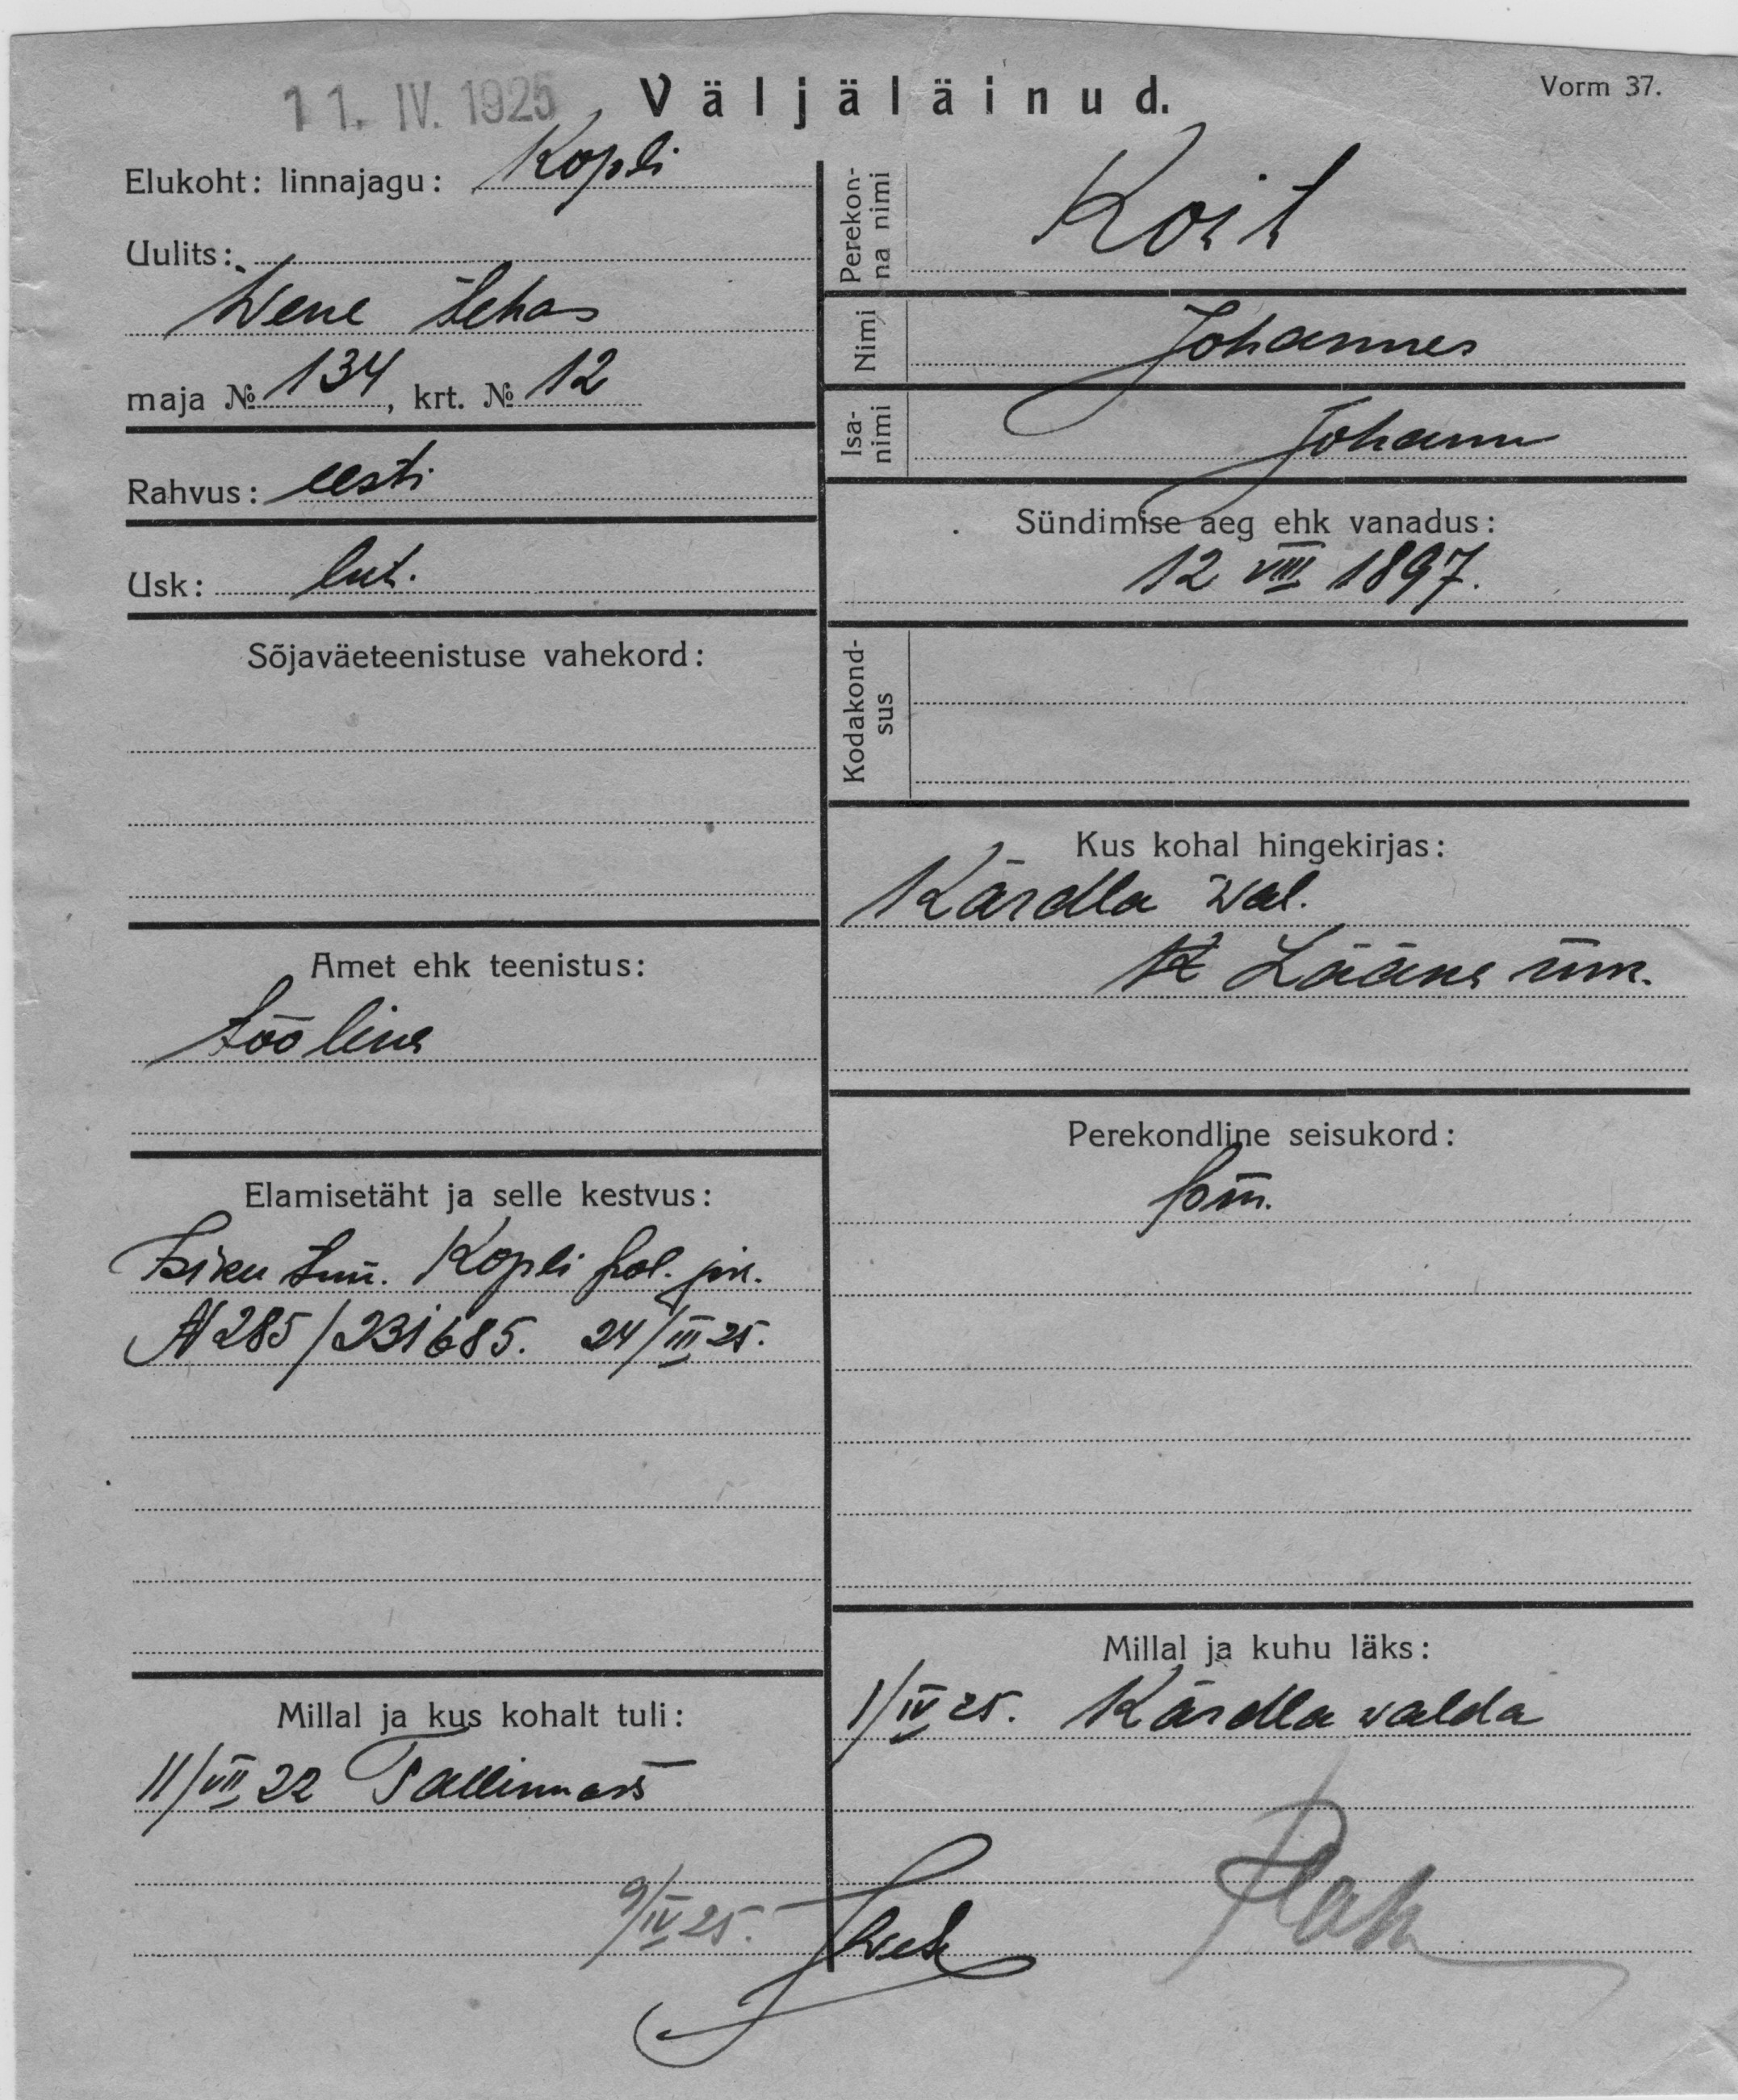 11. IV. 1925
Väljäläinud.
Vorm 37.
Elukoht: linnajagu: Kopli
Uulits:
Wene tehas
maja № 134, krt. № 12
Rahvus: eesti
Usk: lut.
Sõjaväeteenistuse vahekord:
Amet ehk teenistus:
tööline
Elamisetäht ja selle kestvus:
Isiku tun. Kopli pol. jsk.
N 285/231685. 24/III 25.
Millal ja kus kohalt tuli:
11/VII 22 Tallinnast
9/IV 25.
Perekonna nimi
Koit
Nimi
Johannes
Isanimi
Johann
Sündimise aeg ehk vanadus:
12 VIII 1897.
Kodakondsus
Kus kohal hingekirjas:
Kärdla wal.
Lääne mk.
Perekondline seisukord:
Millal ja kuhu läks:
1/IV 25. Kärdla walda